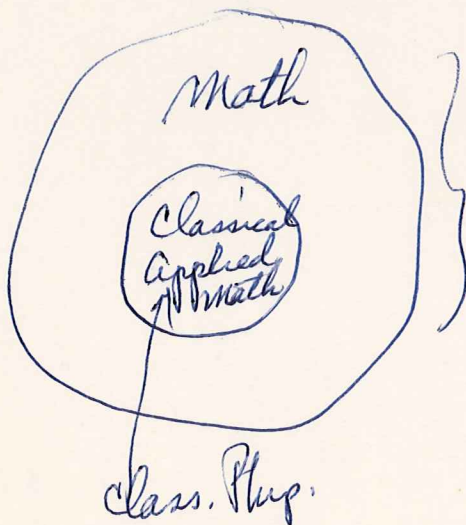 Math
Classical
Applied
Math
Class. Phys.